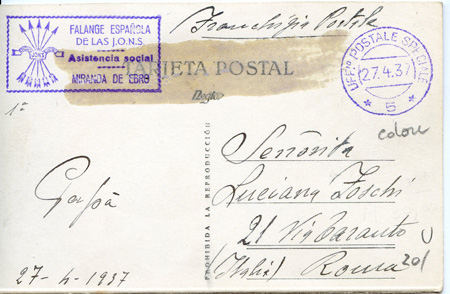 Franchigia Postale
FALANGE ESPAÑOLA
DE LAS J.O.N.S
Asistencia social
MIRANDA DE EBRO
TARJETA POSTAL
UFF.º POSTALE SPECIALE
27.4.37
5
PROHIBIDA LA REPRODUCCIÓN
1ª
27-4-1937
Señorita
Luciana Foschi
21 Via Taranto
(Italia) Roma
201